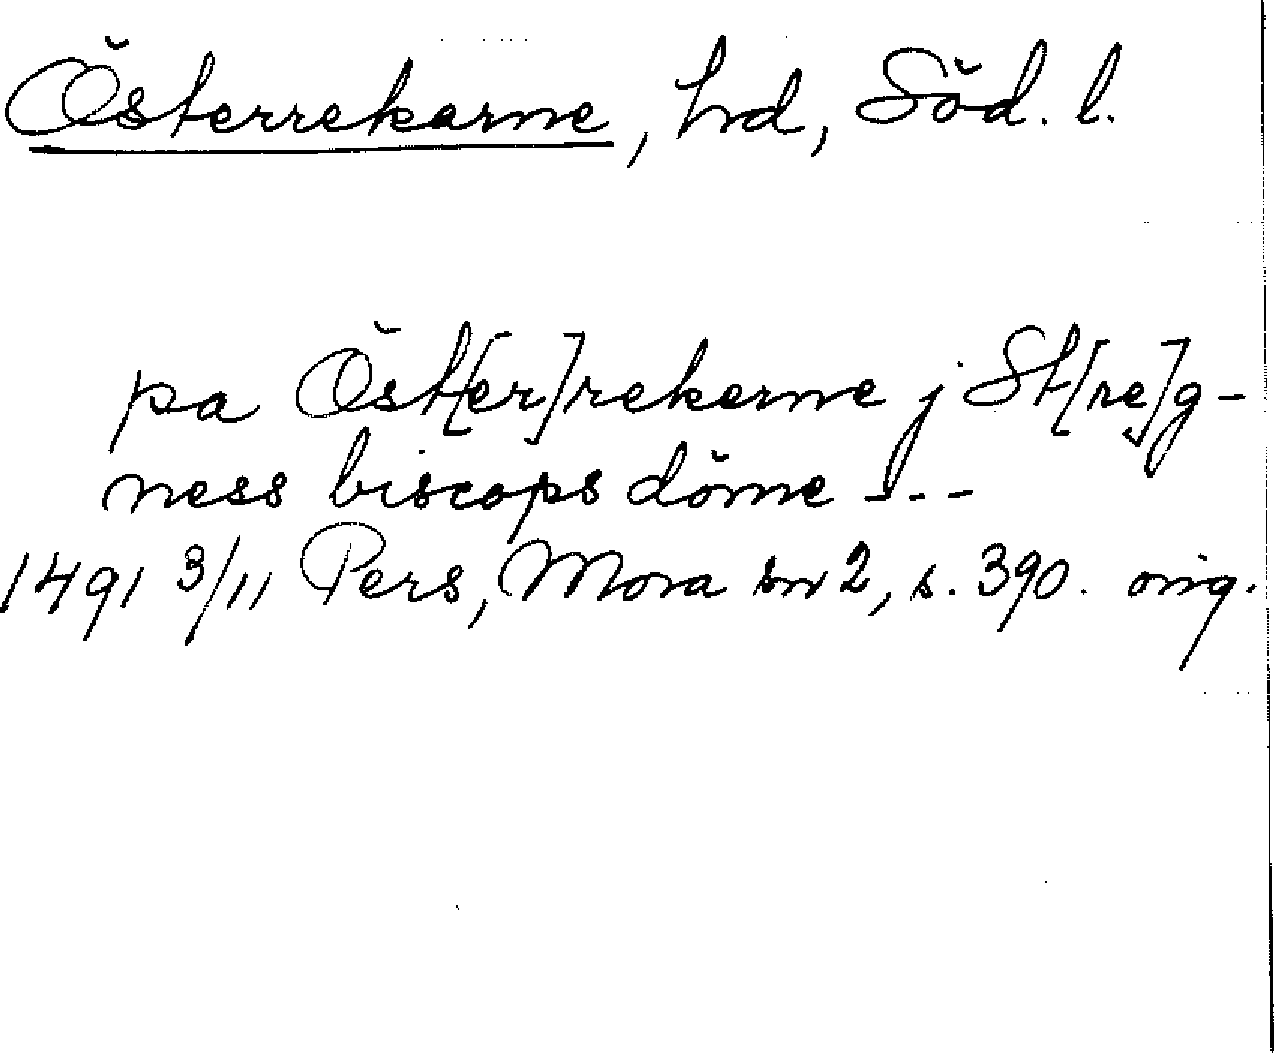 Österrekarne, hd, Söd. l.
pa Öst[er]rekerne j St[re]g-
ness biscops döme - - -
1491 3/11 Pers, Mora sn 2, s. 390. orig.